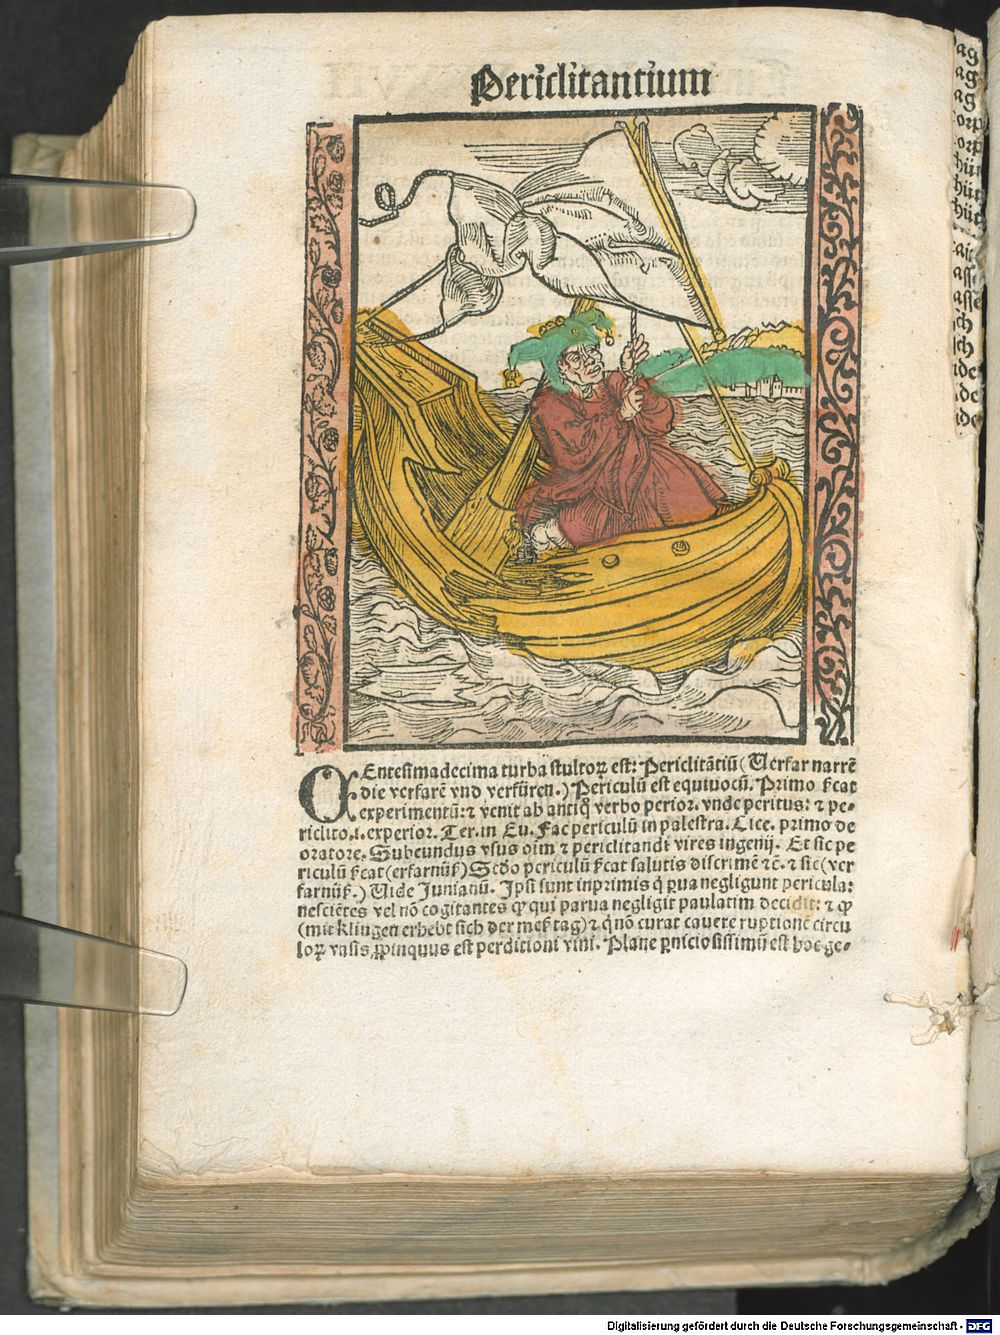 Periclitantium
CEntesimadecima turba stultoꝝ est: Periclitãtiũ (Verfar narrẽ
die verfarẽ vnd verfüren.) Periculũ est equiuocũ. Primo
experimentũ: ⁊ venit ab antiq̃ verbo perior. vnde peritus: ⁊ pe⸗
riclito.i.experior. Ter. in Eu. Fac periculũ in palestra. Cice. primo de
oratore. Subeundus vsus oim̃ ⁊ periclitandi vires ingenij. Et sic pe
riculũ (erfarnüß) Scd̃o periculũ salutis discrimẽ ⁊c̃. ⁊ sic (ver
farnüß.) Vide Junianũ. Ipsi sunt inprimis q̃ ꝑua negligunt pericula:
nesciẽtes vel nõ cogitantes ꝙ qui parua negligit paulatim decidit: ⁊ ꝙ
(mit klingen erhebt sich der meß tag) ⁊ q̃ nõ curat cauere ruptionẽ circu
loꝝ vasis, ꝓpinquus est perditioni vini. Plane ꝑniciosissimũ est hoc ge⸗
ag
ag
ag
orp
orp
hüt
hüt
hüt
asse
assẽ
ich
ich
ide
de
ide
Digitalisierung gefördert durch die Deutsche Forschungsgemeinschaft - DFG